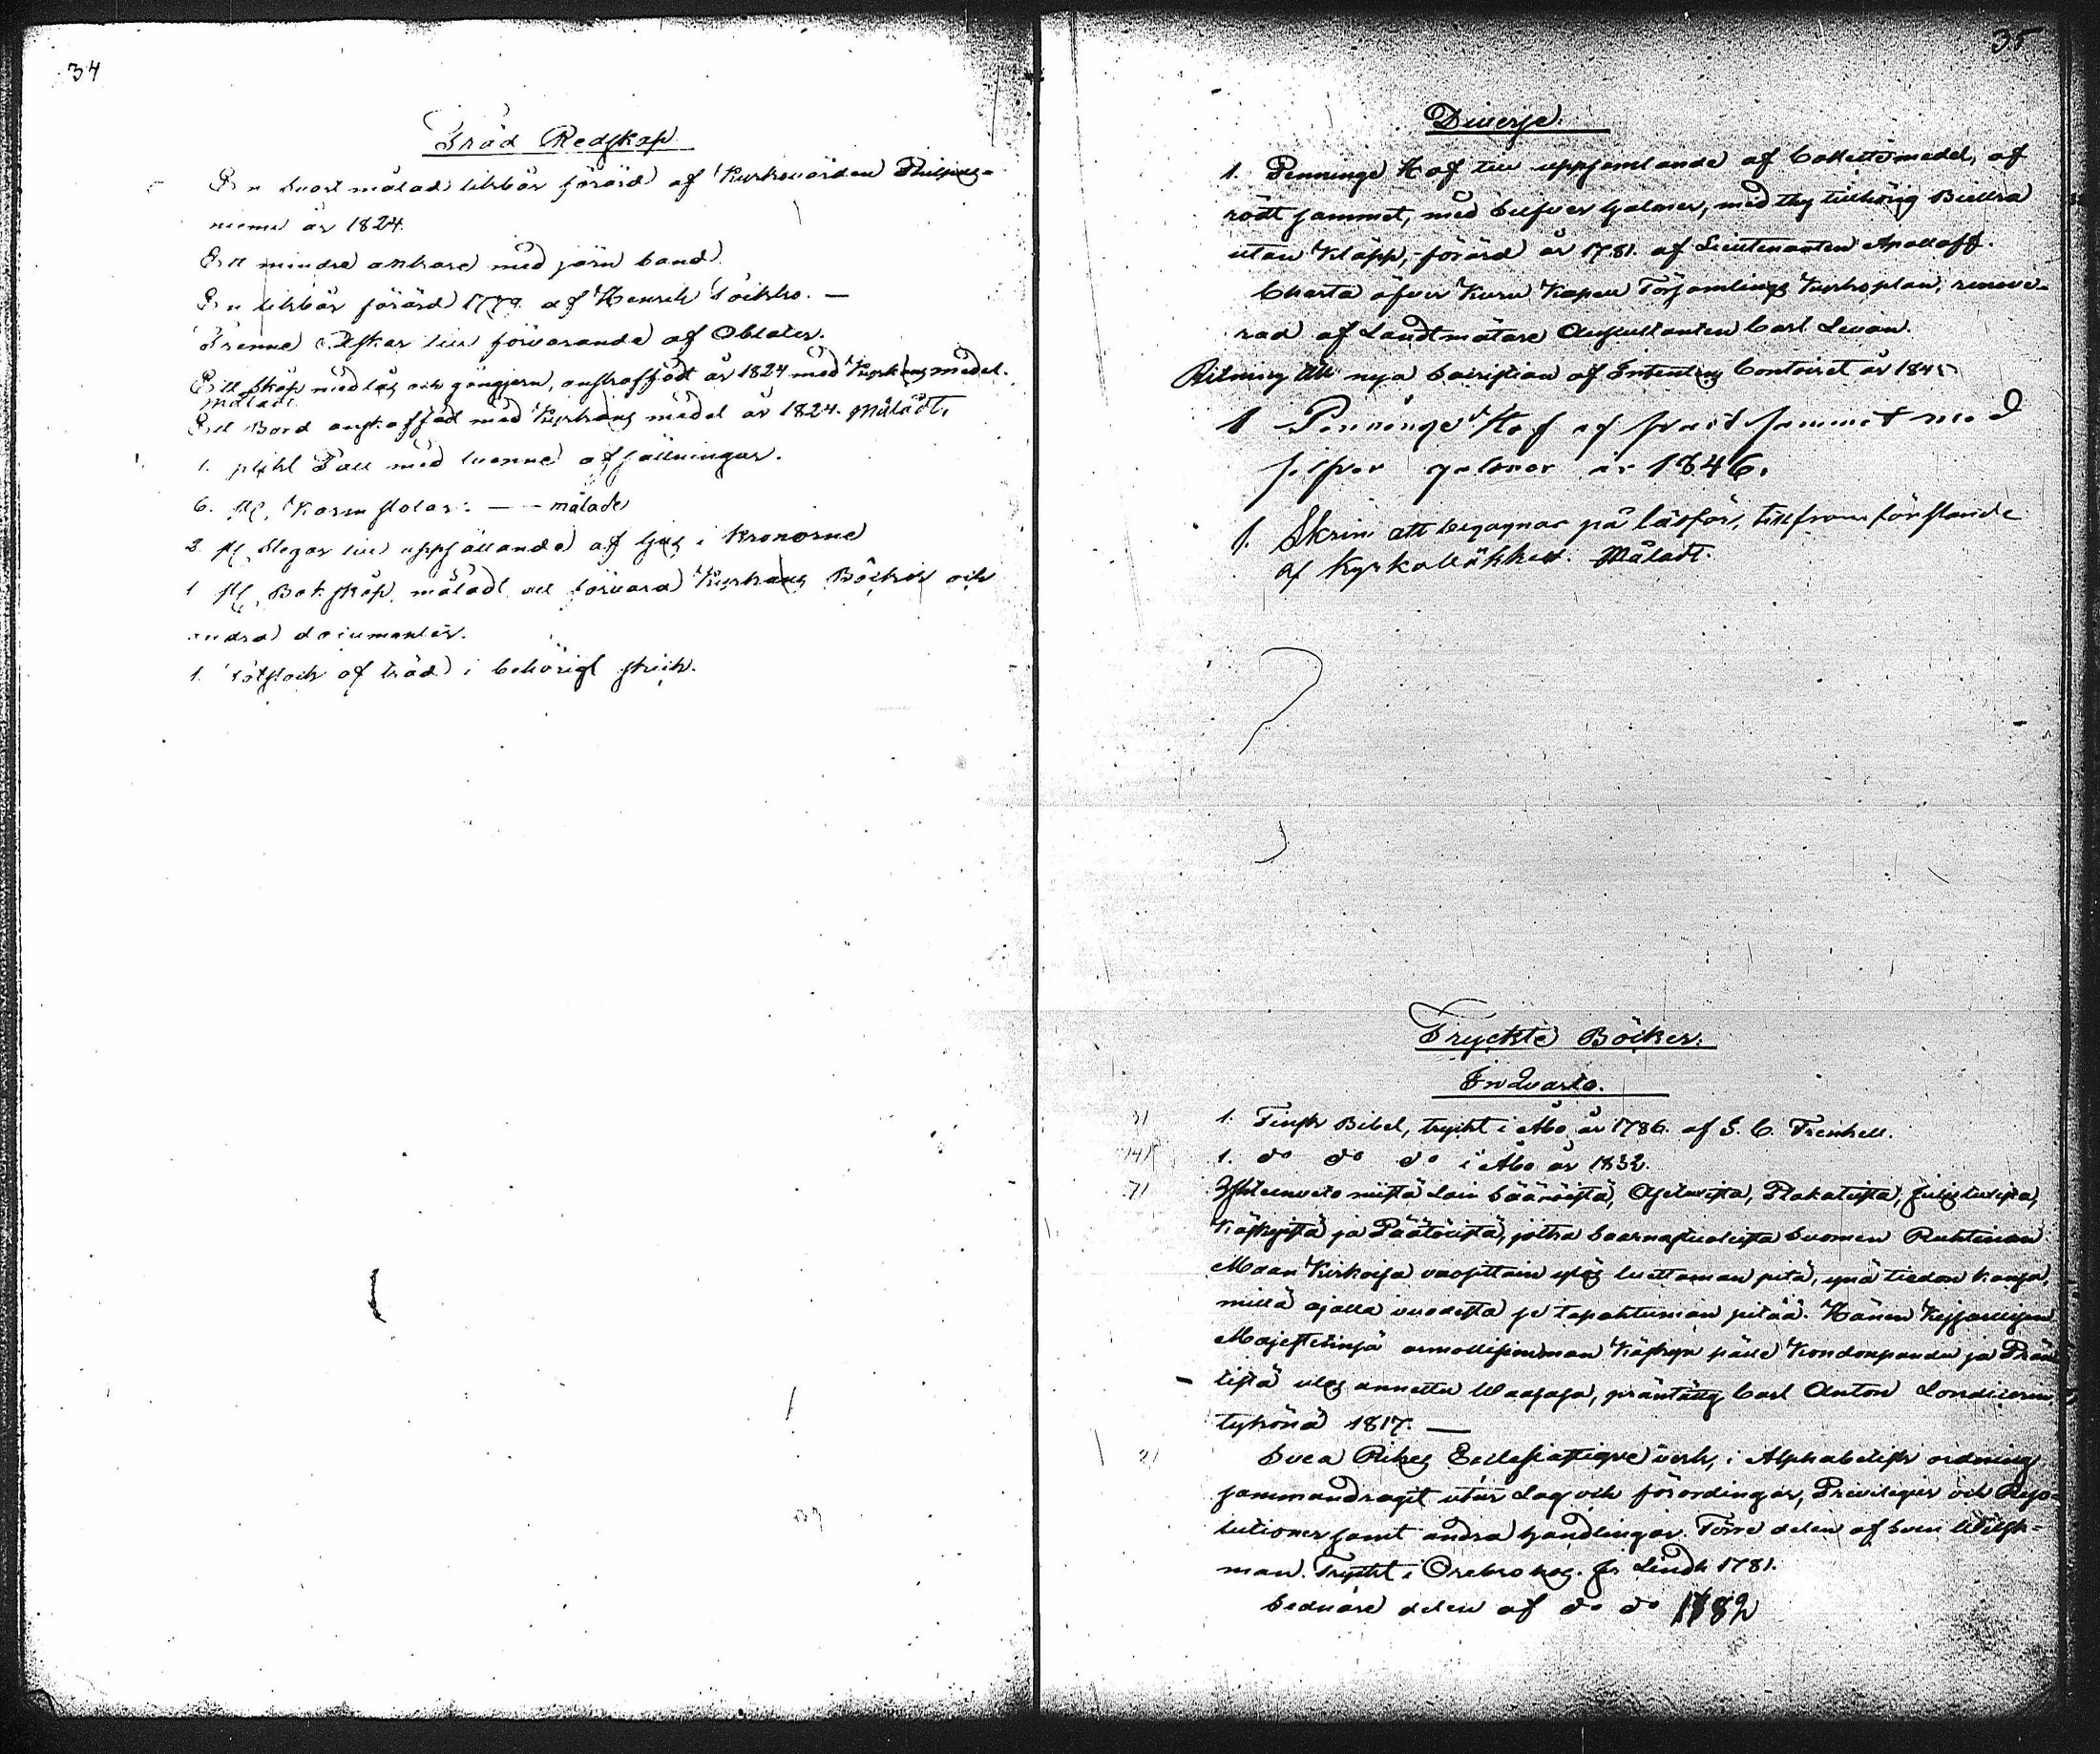 34
Träd Redskap
En svart målad likbår förärd af Kyrkovärden Philpus-
niemi år 1824.
Ett mindre ankare med järn band
En likbår förärd 1779. af Henrik Toikko. —
Trenne Askar till förvarande af Oblater.
Ett skåp med lås och gångjern, anskaffadt år 1824 med Kyrkans medel.
måladt.
Ett Bord anskaffad med Kyrkans medel år 1824. måladt.
1. med tvenne afsättningar.
6. st. Karm stolar: — — målade
2 st. Stegar till uppsättande af ljus i Kronorne
1 st. Bok skåp, måladt att förvara Kyrkans Böcker och
andra documenter.
1. af träd i behörigt skick.
35
Diverse.
1. Penninge Håf till uppsamlande af Collectsmedel, af
rödt sammet, med Silfver galoner, med thy tillhörig Biellra
utan Kläpp, förärd år 1781. af Lieutenanten Apolloff.
Charta öfver Kuru Kapell Församlings Kyrkoplan, renove-
rad af Landtmätare Auscultanten Carl Levan.
Ritning till nya Sacristian af Intendents Contoiret år 184
1 Penninge Håf af svart sammet med
silfver galoner år 1846.
1. Skrin att begagnas på läsför, tillfrom förslande
af Kyrkoböcker. Måladt.
Tryckte Böcker.
In Quarto.
1. Finsk Bibel, tryckt i Åbo år 1786. af J. C. Frenkell.
1. do do do i Åbo år 1832.
Yhteenveto niistä Lain Säännöistä, Asetuxista, Plakateista, Julistuxista,
Käskyistä ja Päätöxistä, jotka Saarnastuoleista Suomen Ruhtinan
Maan Kirkoisa vuosittain ylös luettaman pitä, ynä tiedon kansa,
millä ajalla vuodesta se tapahtuman pitää. Hänen Keisarillisen
Majestetinsä armollisimman Käskyn pälle Kondonpandu ja Prän-
tistä ulos annettu Waasasa, präntätty Carl Anton Londicerin
tykönä 1817. —
Svea Rikes Ecclesiastique verk, i Alphabetisk ordning
sammandragit utur Lag och förordningar, Privilegier och Reso-
lutioner samt andra handlingar. Förre delen af Sven Wilsk-
man. Tryckt i Örebro hos J. Lindh 1781.
Sednare delen af do do 1782